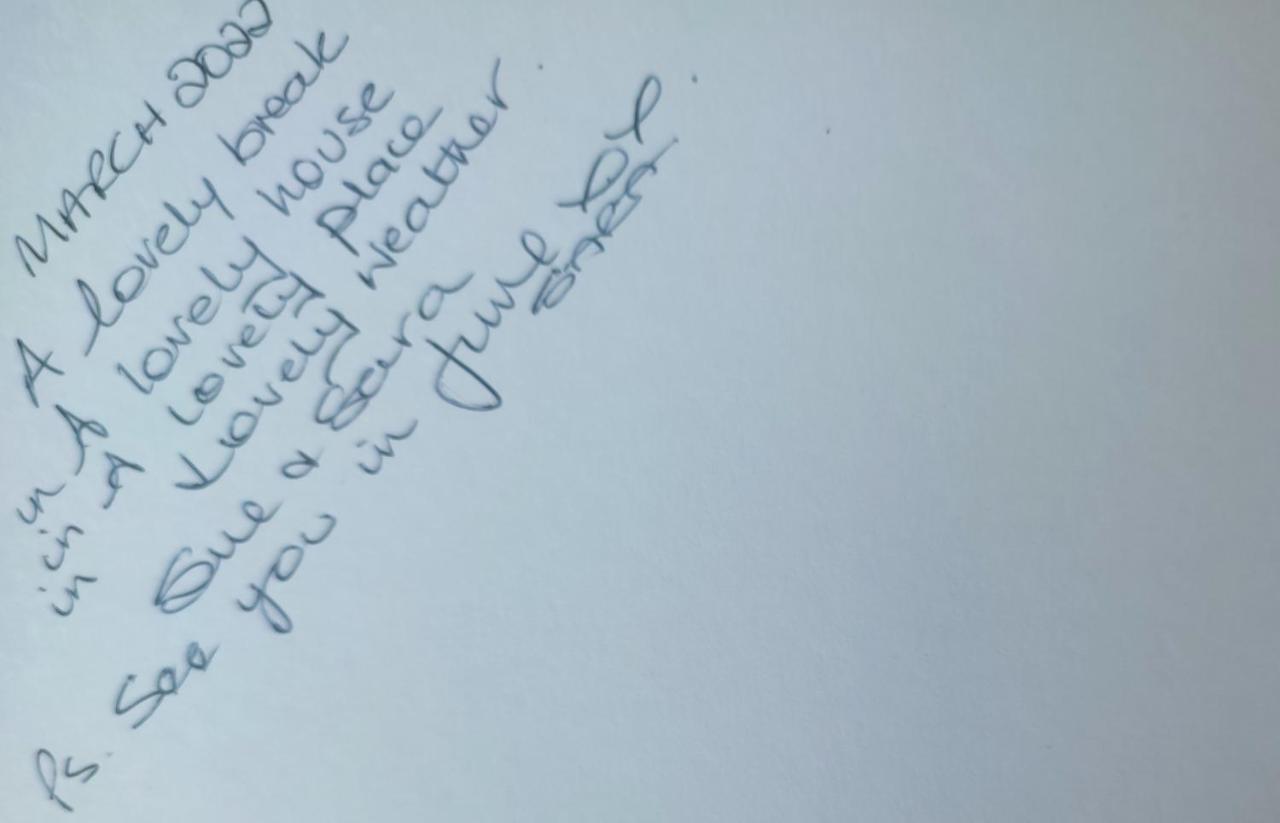 MARCH 2022
A lovely break
in A lovely house
in A lovely place
in lovely weather.
Sue & Sara
Ps. See you in June